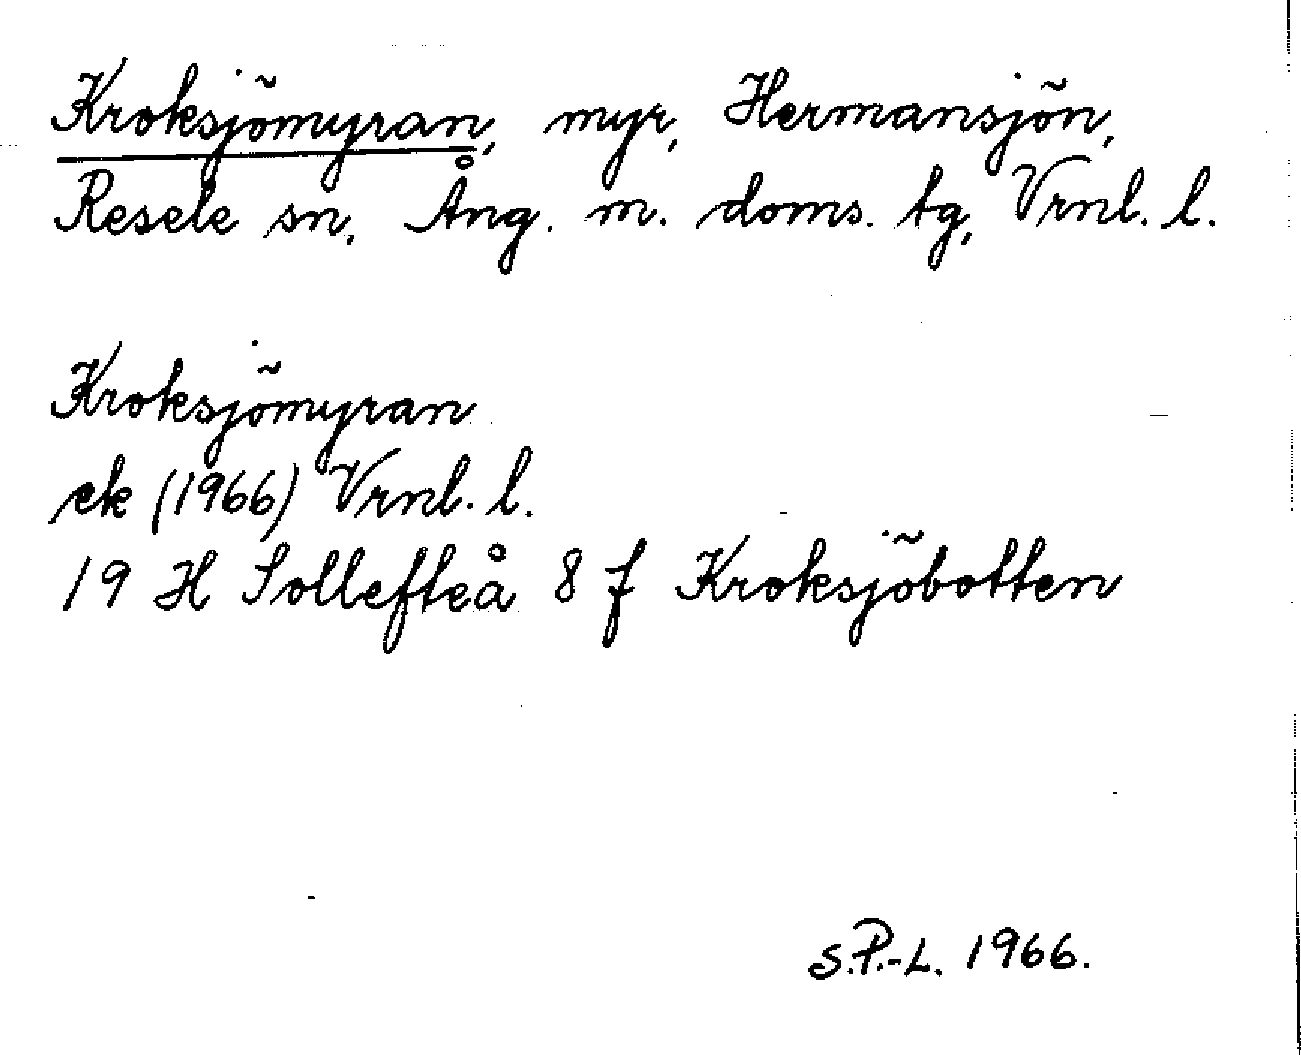 Kroksjömyran, myr, Hermansjön,
Resele sn, Ång. m. doms. tg, Vrnl. l.
Kroksjömyran
ek (1966) Vrnl. l.
19 H Sollefteå 8 f Kroksjöbotten
S.P.-L. 1966.